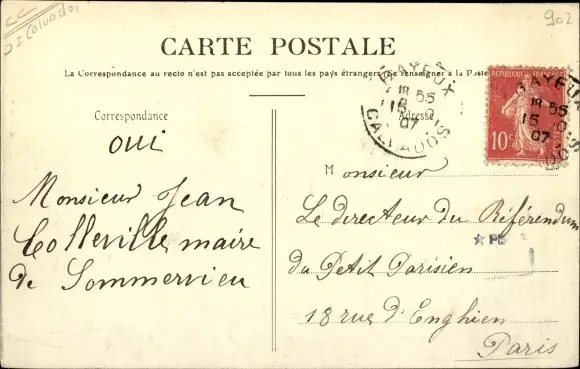 CC
DI Calvados
902
CARTE POSTALE
La Correspondance au recto n'est pas acceptée par tous les pays étrangers. Se renseigner à la Poste
Correspondance
oui
Monsieur Jean
Colleville maire
de Sommervieu
Adresse
BAYEUX
18 55
15
07
CALVADOS
RÉPUBLIQUE FRANÇAISE
10c
BAYEUX
18 55
15
07
Monsieur
Le directeur du Référendum
★ PD
du Petit Parisien
18 rue d'Enghien
Paris